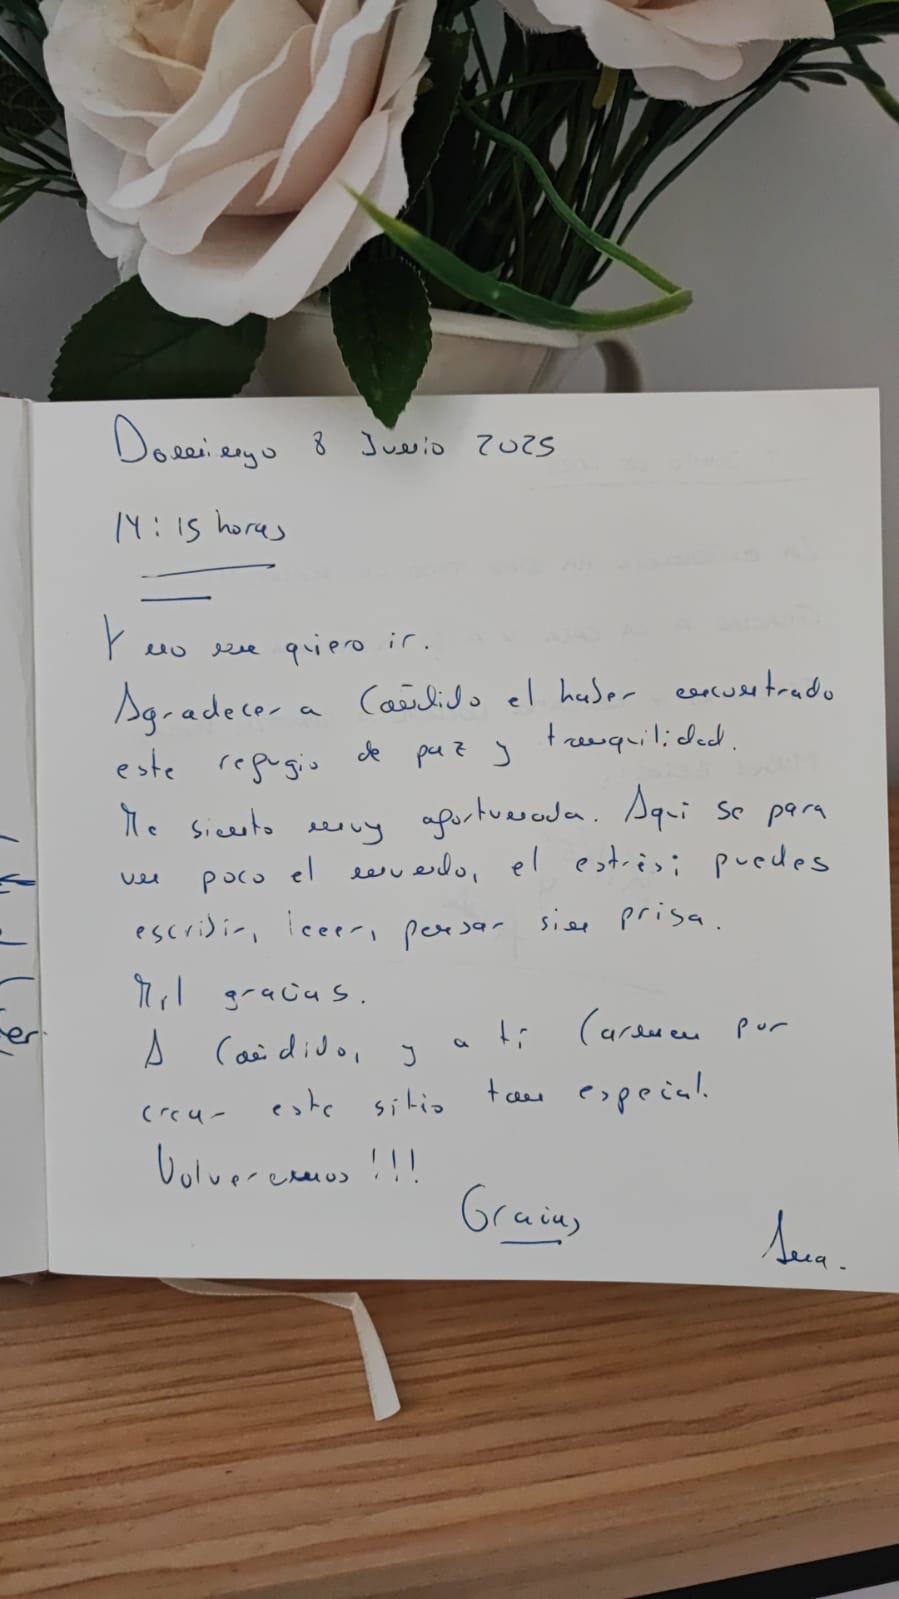 Domingo 8 Junio 2025
14:15 horas
Y no me quiero ir.
Agradecer a Cándido el haber encontrado
este refugio de paz y tranquilidad.
Me siento muy afortunada. Aquí se para
un poco el mundo, el estrés; puedes
escribir, leer, pensar sin prisa.
Mil gracias.
A Cándido, y a ti Carmen por
crear este sitio tan especial.
Volveremos!!!
Gracias
Ana.